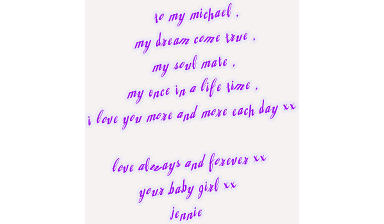 to my michael ,
my dream come true ,
my soul mate ,
my once in a life time ,
i love you more and more each day xx
love always and forever xx
your baby girl xx
jennie